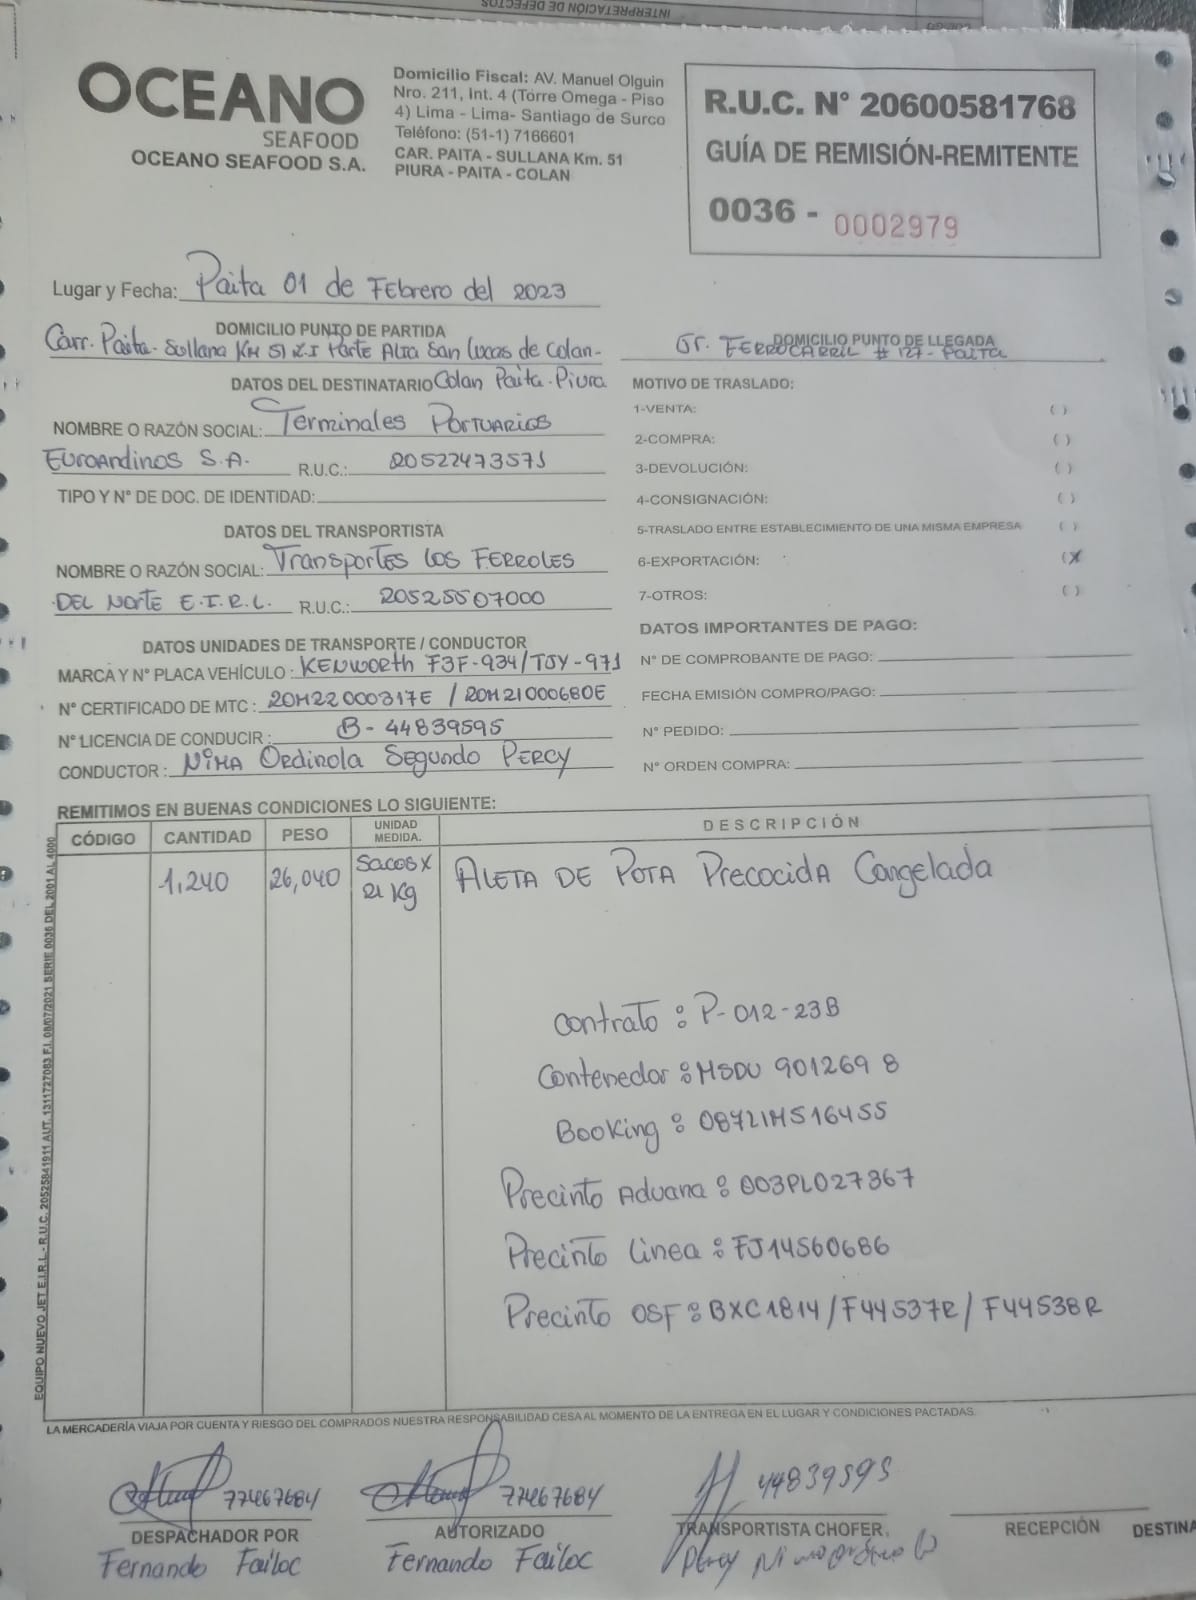 INTERPRETACIÓN DE DEFECTOS
OCEANO
SEAFOOD
OCEANO SEAFOOD S.A.
Domicilio Fiscal: AV. Manuel Olguin
Nro. 211, Int. 4 (Torre Omega - Piso
4) Lima - Lima- Santiago de Surco
Teléfono: (51-1) 7166601
CAR. PAITA - SULLANA Km. 51
PIURA - PAITA - COLAN
R.U.C. N° 20600581768
GUÍA DE REMISIÓN-REMITENTE
0036 - 0002979
Lugar y Fecha: Paita 01 de Febrero del 2023
DOMICILIO PUNTO DE PARTIDA
Carr. Paita - Sullana KM 51 Z.I Parte Alta San Lucas de Colan-
Colan Paita - Piura
DOMICILIO PUNTO DE LLEGADA
Jr. FERROCARRIL # 127 - PAITA
DATOS DEL DESTINATARIO
NOMBRE O RAZÓN SOCIAL: Terminales Portuarios
Euroandinos S.A. R.U.C.: 20522473571
TIPO Y N° DE DOC. DE IDENTIDAD:
DATOS DEL TRANSPORTISTA
NOMBRE O RAZÓN SOCIAL: Transportes los FERROLES
DEL Norte E.I.R.L. R.U.C.: 20525507000
DATOS UNIDADES DE TRANSPORTE / CONDUCTOR
MARCA Y N° PLACA VEHÍCULO: KENWORTH F3F-934/TJY-971
N° CERTIFICADO DE MTC: 20M22000317E / 20M21000680E
N° LICENCIA DE CONDUCIR: B-44839595
CONDUCTOR: NIMA Ordinola Segundo PERCY
MOTIVO DE TRASLADO:
1-VENTA: ( )
2-COMPRA: ( )
3-DEVOLUCIÓN: ( )
4-CONSIGNACIÓN: ( )
5-TRASLADO ENTRE ESTABLECIMIENTO DE UNA MISMA EMPRESA ( )
6-EXPORTACIÓN: (X
7-OTROS: ( )
DATOS IMPORTANTES DE PAGO:
N° DE COMPROBANTE DE PAGO:
FECHA EMISIÓN COMPRO/PAGO:
N° PEDIDO:
N° ORDEN COMPRA:
REMITIMOS EN BUENAS CONDICIONES LO SIGUIENTE:
CÓDIGO CANTIDAD PESO UNIDAD MEDIDA. DESCRIPCIÓN
1,240 26,040 Sacos x 21 Kg ALETA DE POTA Precocida Congelada
Contrato: P-012-23B
Contenedor: MSDU 901269 8
Booking: 087LIMS16455
Precinto Aduana: 003PL027367
Precinto Linea: FJ14560686
Precinto OSF: BXC1814/F44537R/F44538R
EQUIPO NUEVO JET E.I.R.L - R.U.C. 20525841911 AUT. 1311727083 F.I. 08/07/2021 SERIE 0036 DEL 2001 AL 4000
LA MERCADERÍA VIAJA POR CUENTA Y RIESGO DEL COMPRADOS NUESTRA RESPONSABILIDAD CESA AL MOMENTO DE LA ENTREGA EN EL LUGAR Y CONDICIONES PACTADAS.
77467684 77467684 44839595
DESPACHADOR POR AUTORIZADO TRANSPORTISTA CHOFER. RECEPCIÓN DESTINA
Fernando Failoc Fernando Failoc Percy